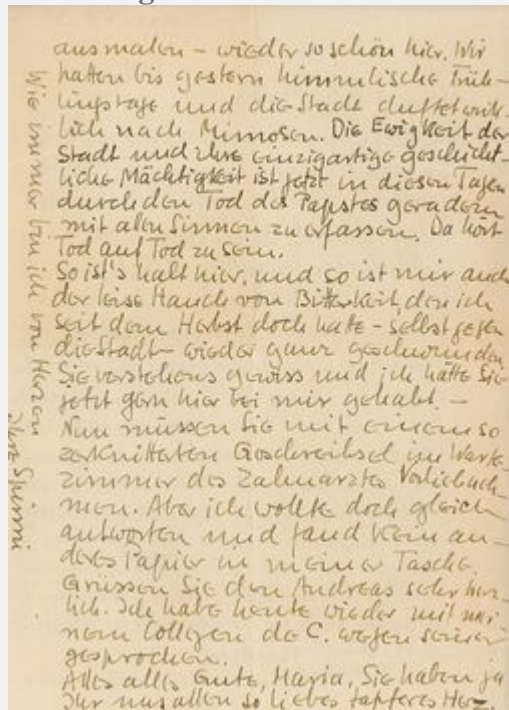 ausmalen – wieder so schön hier. Wir
hatten bis gestern himmlische Früh-
lingstage und die Stadt duftet wirk-
lich nach Mimosen. Die Ewigkeit der
Stadt und ihre einzigartige geschicht-
liche Mächtigkeit ist jetzt in diesen Tagen
durch den Tod des Papstes geradezu
mit allen Sinnen zu erfassen. Da hört
Tod auf Tod zu sein.
So ist's halt hier, und so ist mir auch
der leise Hauch von Bitterkeit, den ich
seit dem Herbst doch hatte – selbst gegen
die Stadt – wieder ganz geschwunden
Sie verstehens gewiss und ich hätte Sie
jetzt gern hier bei mir gehabt. –
Nun müssen Sie mit einem so
zerknitterten Geschreibsel im Warte-
zimmer des Zahnarztes Vorlieb neh-
men. Aber ich wollte doch gleich
antworten und fand kein an-
deres Papier in meiner Tasche.
Grüssen Sie den Andreas sehr herz-
lich. Ich habe heute wieder mit mei-
nem Collegen de C. wegen seiner
gesprochen.
Alles alles Gute, Maria, Sie haben ja
Ihr uns allen so liebes tapferes Herz.
Wie immer bin ich von Herzen
Ihre